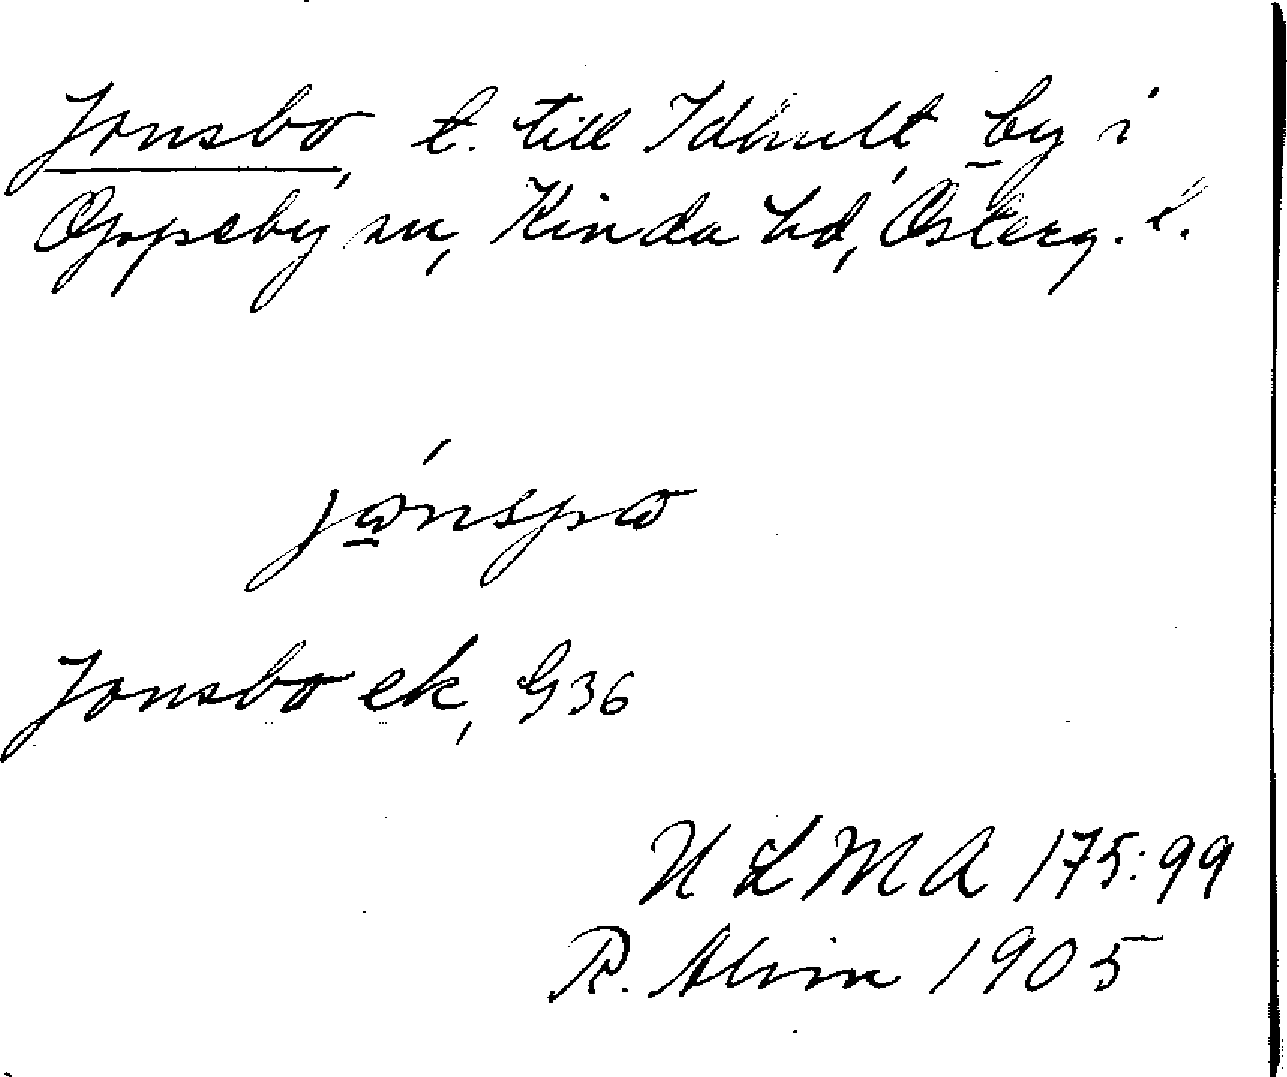 Jonsbo, t. till Idhult, by i
Oppeby sn, Kinda hd, Österg. l.
Jonsbo ek, G36
ULMA 175:99
R. Alvin 1905